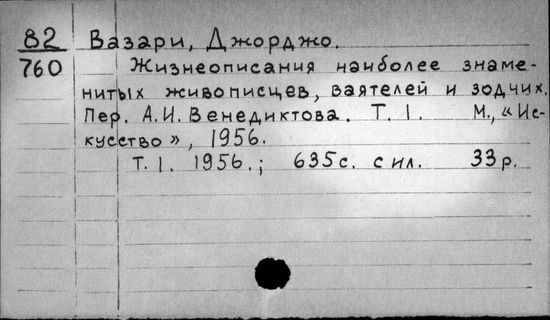 82 Вазари, Джорджо.
760 Жизнеописания наиболее знаме-
нитых живописцев, ваятелей и зодчих.
Пер. А.И. Венедиктова. Т. 1. М., «Ис-
кусство», 1956.
Т. 1. 1956.; 635с. с ил. 33р.